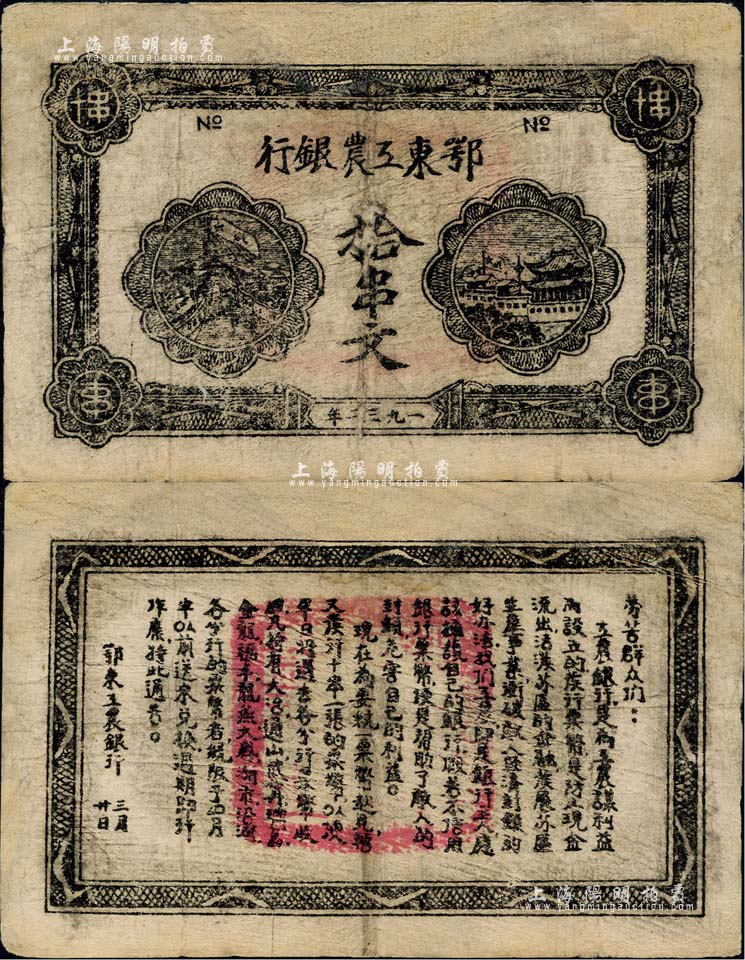 上海陽明拍賣
www.yangmingauction.com
№
№
鄂東工農銀行
拾串文
一九三二年
上海陽明拍賣
www.yangmingauction.com
勞苦群众们：
工農銀行是為工農謀利益
而設立的發行票幣是防止現金
流出活潑苏區的金融發展苏區
生產事業衝破敌人經濟封鎖的
好办法我们工農即是銀行主人應
該擁護自己的銀行假若不信用
銀行票幣便是帮助了敌人的
封鎖危害自己的利益。
現在為要統一票幣
又發行十串一張的票幣
各分行的票幣若
半以前送來兌換過期即行
作廢特此通告。
鄂東工農銀行
三月
廿日
上海陽明拍賣
www.yangmingauction.com